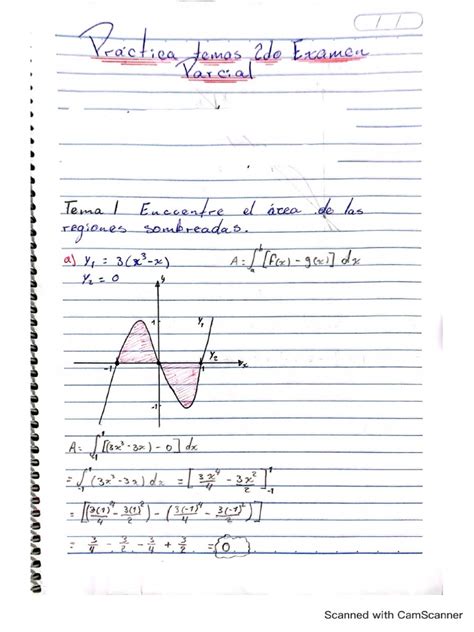 Práctica temas 2do Examen
Parcial
Tema 1 Encuentre el área de las
regiones sombreadas.
a) y₁ = 3(x³-x)     A=∫ₐᵇ [f(x) - g(x)] dx
y₂ = 0
y
1
y₁
y₂
-1
1
x
-1
A= ∫₋₁¹ [(3x³-3x)-0] dx
= ∫₋₁¹ (3x³-3x) dx = [3x⁴/4 - 3x²/2]₋₁¹
= [(3(1)⁴/4 - 3(1)²/2) - (3(-1)⁴/4 - 3(-1)²/2)]
= 3/4 - 3/2 - 3/4 + 3/2 = 0
Scanned with CamScanner